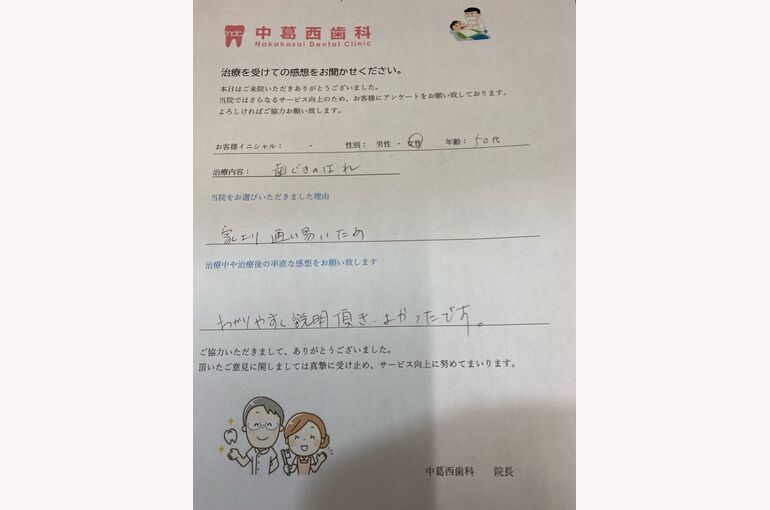 ndc 中葛西歯科
Nakakasai Dental Clinic
治療を受けての感想をお聞かせください。
本日はご来院いただきありがとうございました。
当院ではさらなるサービス向上のため、お客様にアンケートをお願い致しております。
よろしければご協力お願い致します。
お客様イニシャル： ・ 性別： 男性 ・ 女性 年齢： 50代
治療内容： 歯ぐきのはれ
当院をお選びいただきました理由
家より 通い易いため
治療中や治療後の率直な感想をお願い致します
わかりやすく説明頂き、よかったです。
ご協力いただきまして、ありがとうございました。
頂いたご意見に関しましては真摯に受け止め、サービス向上に努めてまいります。
中葛西歯科 院長